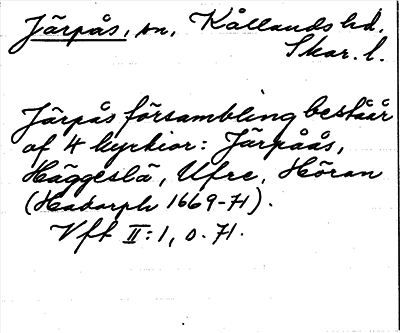 Järpås, sn, Kållands hd,
Skar. l.
Järpås försambling beståår
af 4 kyrkior: Järpåås,
Häggeslä, Ufre, Höran
(Hadorph 1669-71).
Vff II:1, o. 71.